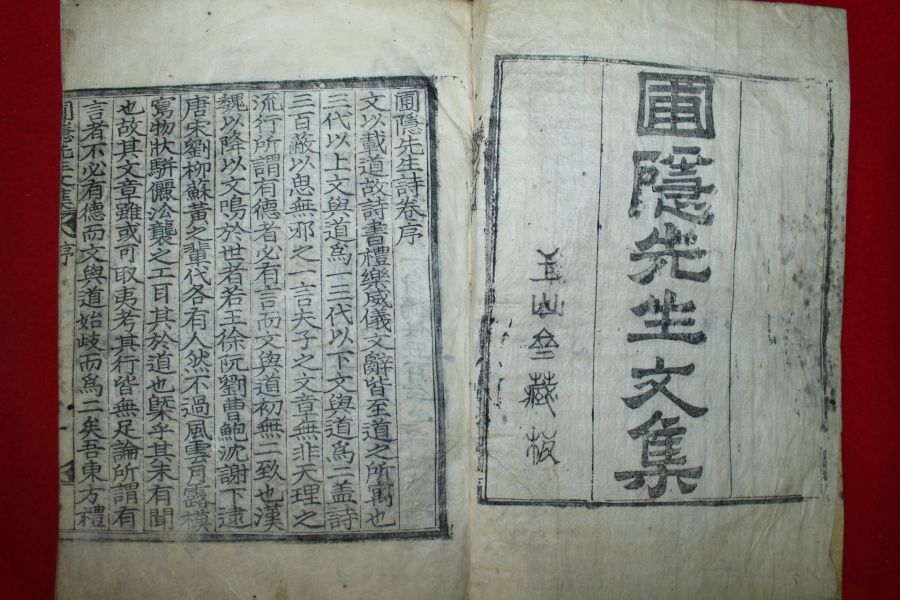 圃隱先生文集
玉山㙒藏板
圃隱先生詩卷序
文以載道故詩書禮樂威儀文辭皆至道之所寓也
三代以上文與道爲一三代以下文與道爲二盖詩
三百蔽以思無邪之一言夫子之文章無非天理之
流行所謂有德者必有言而文與道初無二致也漢
魏以降以文鳴於世者若王徐阮劉曹鮑沈謝下逮
唐宋劉柳蘇黃之輩代各有人然不過風雲月露模
寫物狀騈儷沿襲之工耳其於道也槩乎其未有聞
也故其文章雖或可取夷考其行皆無足論所謂有
言者不必有德而文與道始歧而爲二矣吾東方禮
圃隱先生集 序